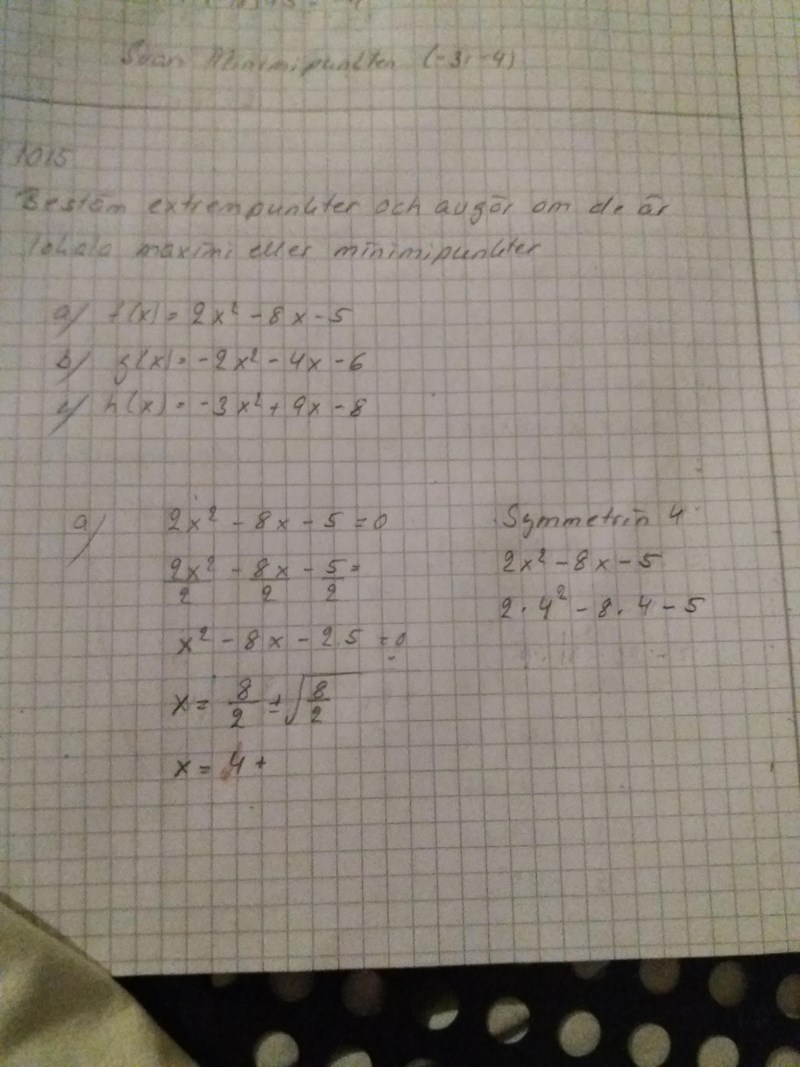 Svar: Minimipunkten (-3, -4)
1015
Bestäm extrempunkter och avgör om de är
lokala maximi eller minimipunkter
a) f(x) = 2x² - 8x - 5
b) g(x) = -2x² - 4x - 6
c) h(x) = -3x² + 9x - 8
a) 2x² - 8x - 5 = 0
2x²/2 - 8x/2 - 5/2 =
x² - 8x - 2.5 = 0
x = 8/2 ± √8/2
x = 4 +
Symmetrin 4
2x² - 8x - 5
2·4² - 8·4 - 5